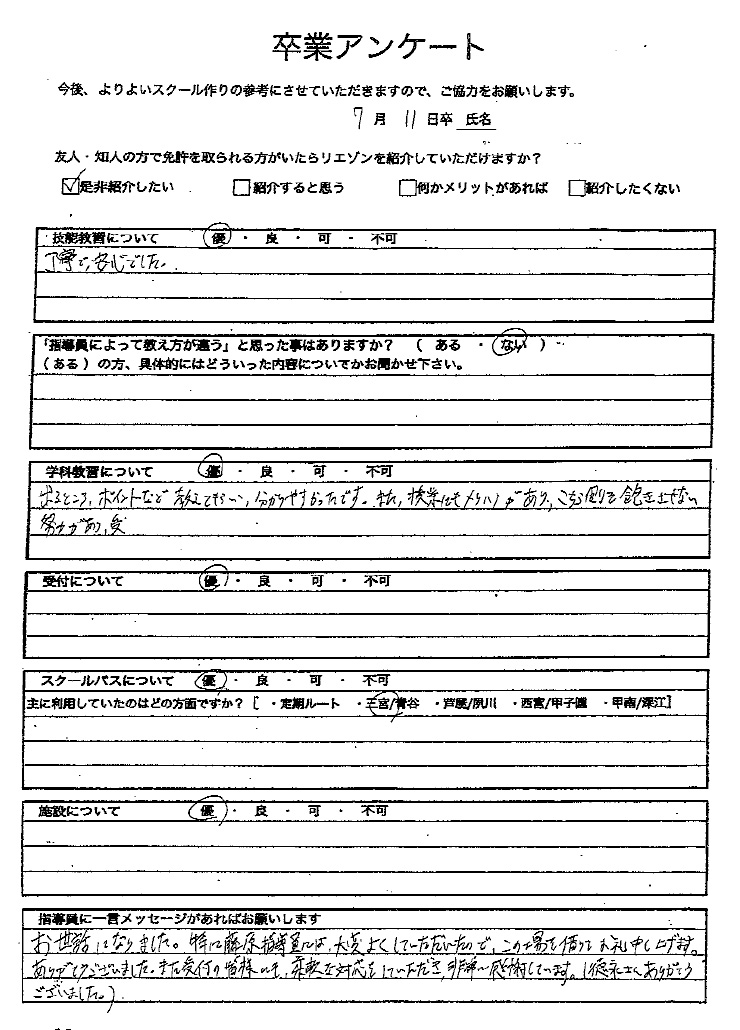 卒業アンケート
今後、よりよいスクール作りの参考にさせていただきますので、ご協力をお願いします。
7月 11日卒 氏名
友人・知人の方で免許を取られる方がいたらリエゾンを紹介していただけますか?
☑是非紹介したい □紹介すると思う □何かメリットがあれば □紹介したくない
技能教習について 優 ・ 良 ・ 可 ・ 不可
丁寧で、安心でした。
「指導員によって教え方が違う」と思った事はありますか? ( ある ・ ない )
(ある)の方、具体的にはどういった内容についてかお聞かせ下さい。
学科教習について 優 ・ 良 ・ 可 ・ 不可
出るところ、ポイントなど教えてもらい、分かりやすかったです。また、授業にもメリハリがあり、こちら側を飽きさせない
努力があり、
受付について 優 ・ 良 ・ 可 ・ 不可
スクールバスについて 優 ・ 良 ・ 可 ・ 不可
主に利用していたのはどの方面ですか?[ ・定期ルート ・三宮/青谷 ・芦屋/夙川 ・西宮/甲子園 ・甲南/深江]
施設について 優 ・ 良 ・ 可 ・ 不可
指導員に一言メッセージがあればお願いします
お世話になりました。特に藤原指導員には、大変よくしていただいたので、この場を借りてお礼申し上げます。
ありがとうございました。また受付の皆様にも、柔軟な対応をしていただき、非常に感謝しています。(徳永さんありがとう
ございました。)